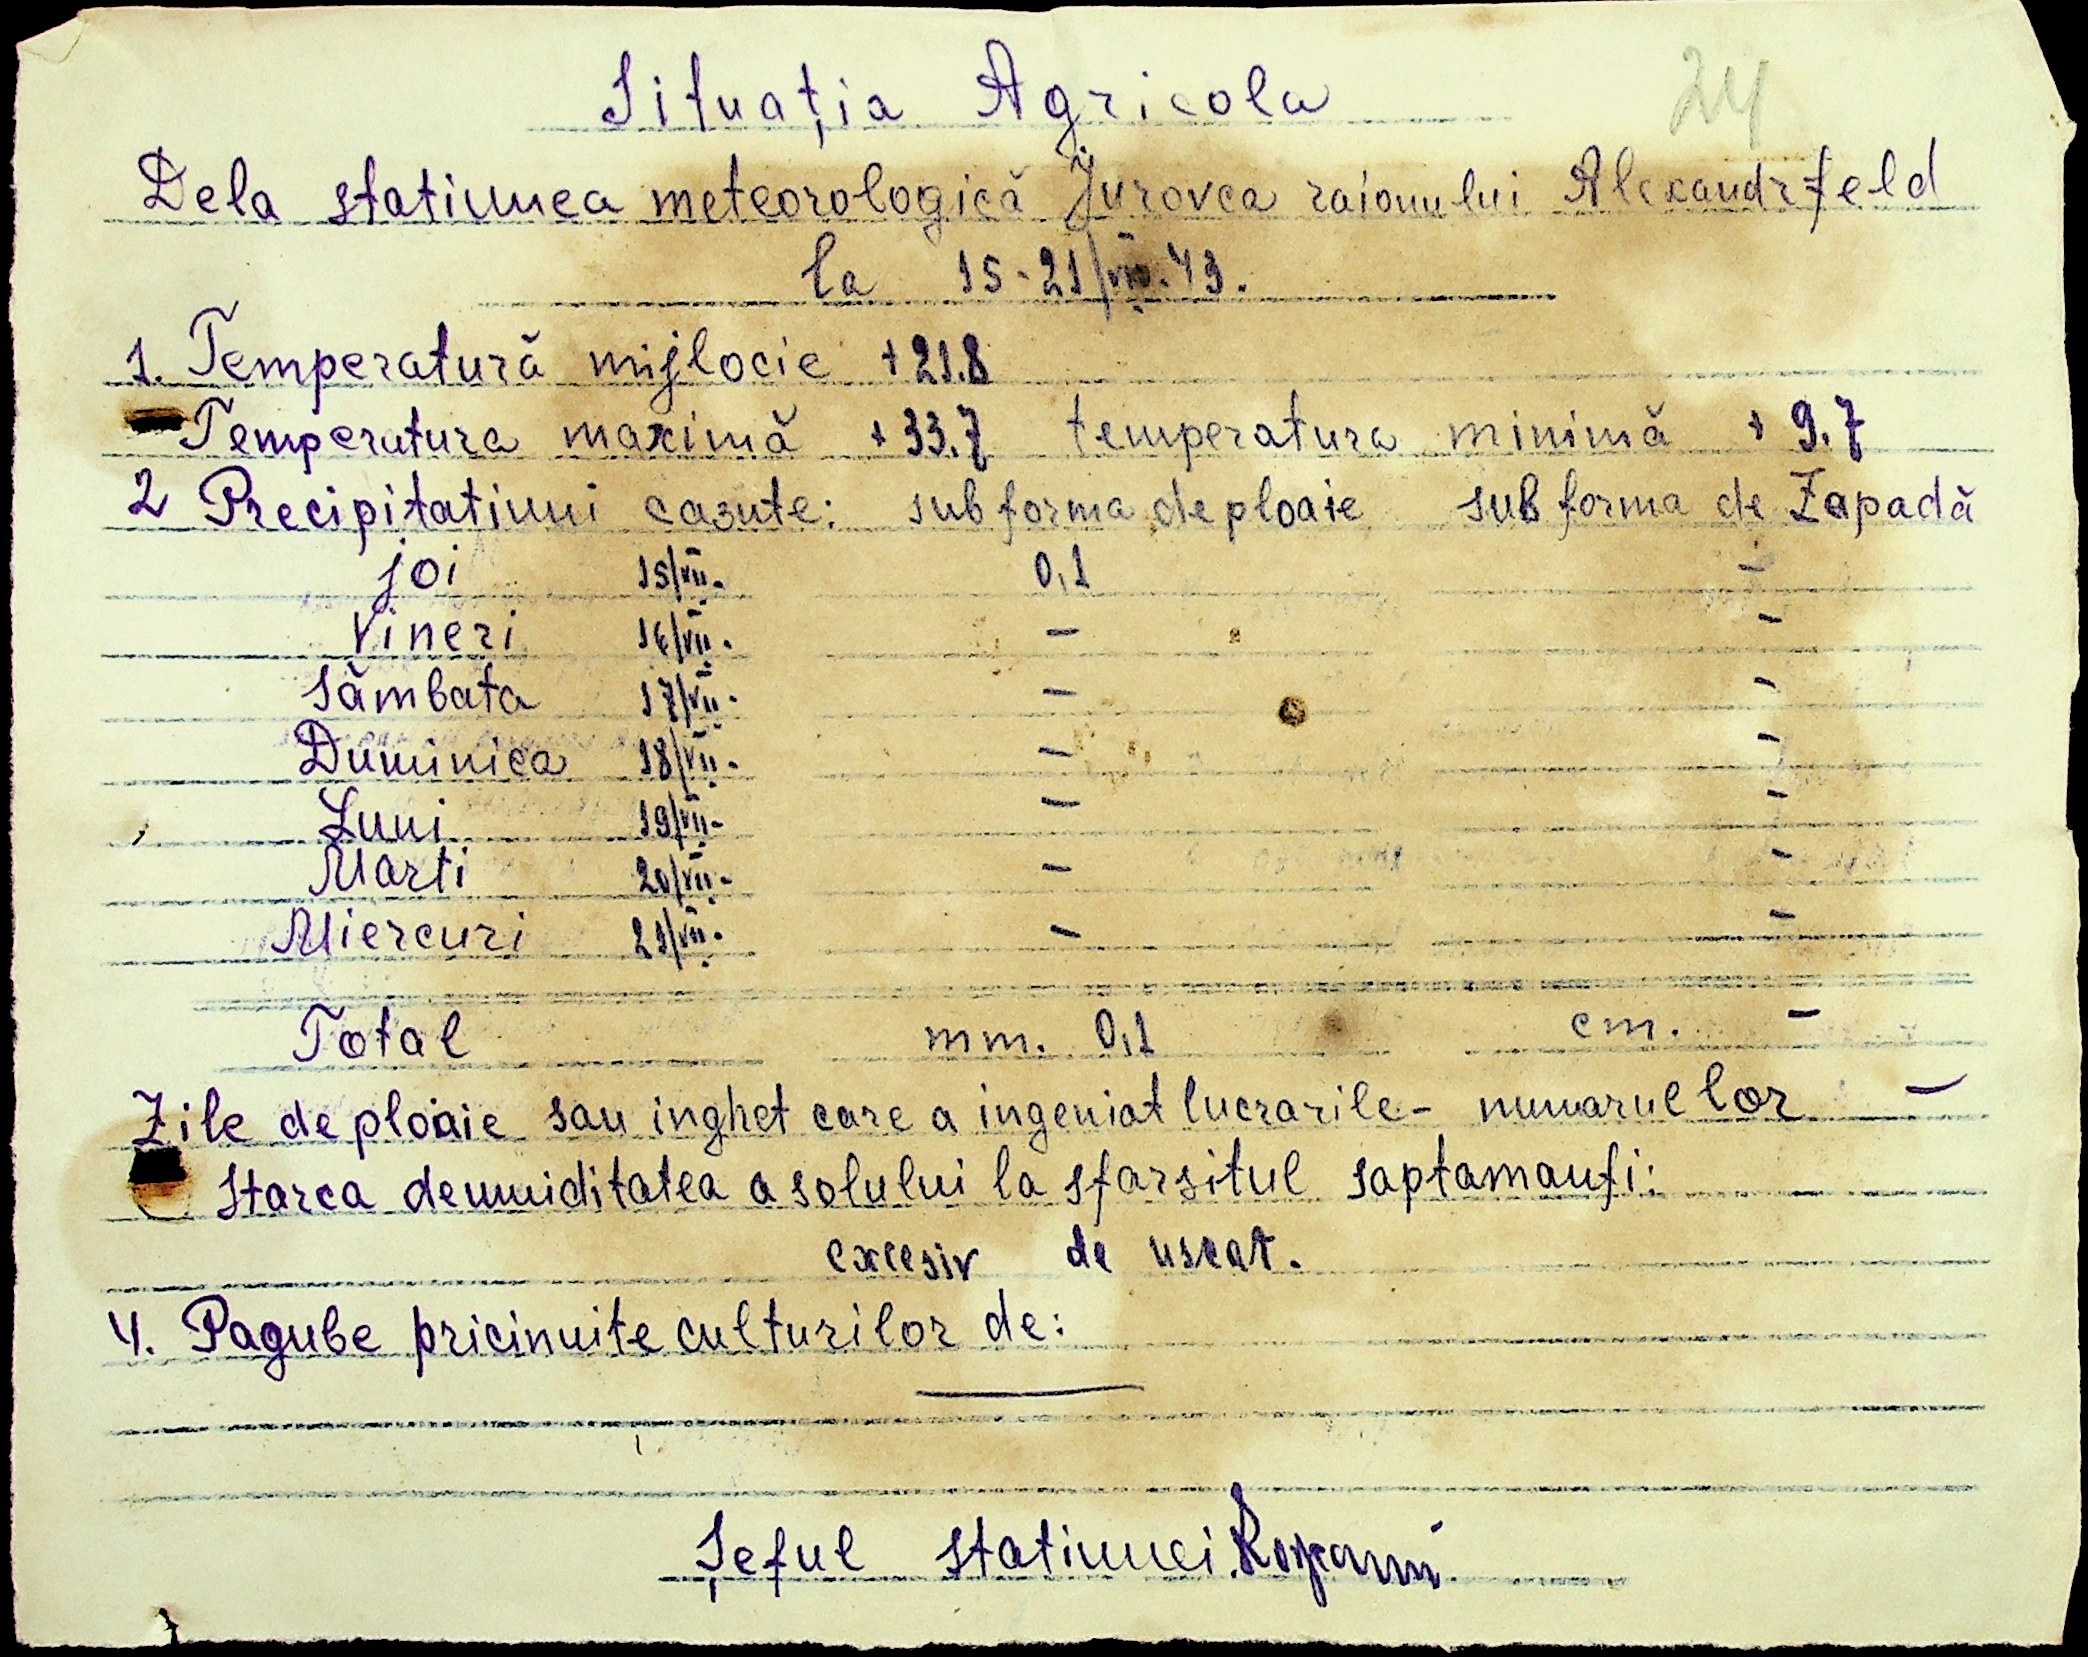 Situația Agricola
24
Dela statiunea meteorologică Jurovca raionului Alexandrfeld
la 15-21/VII.43.
1. Temperatură mijlocie +21.8
Temperatura maximă +33.7 temperatura minimă + 9.7
2 Precipitatiuni cazute: sub forma de ploaie sub forma de Zapadă
joi 15/VII. 0,1 -
Vineri 16/VII. - -
Sâmbata 17/VII. - -
Duminica 18/VII. - -
Luni 19/VII. - -
Marti 20/VII. - -
Miercuri 21/VII. - -
Total mm. 0,1 cm. -
Zile de ploaie sau inghet care a ingeniat lucrarile - numarul lor -
Starea de umiditatea a solului la sfarsitul saptamanii:
excesiv de uscat.
4. Pagube pricinuite culturilor de:
Șeful statiunei